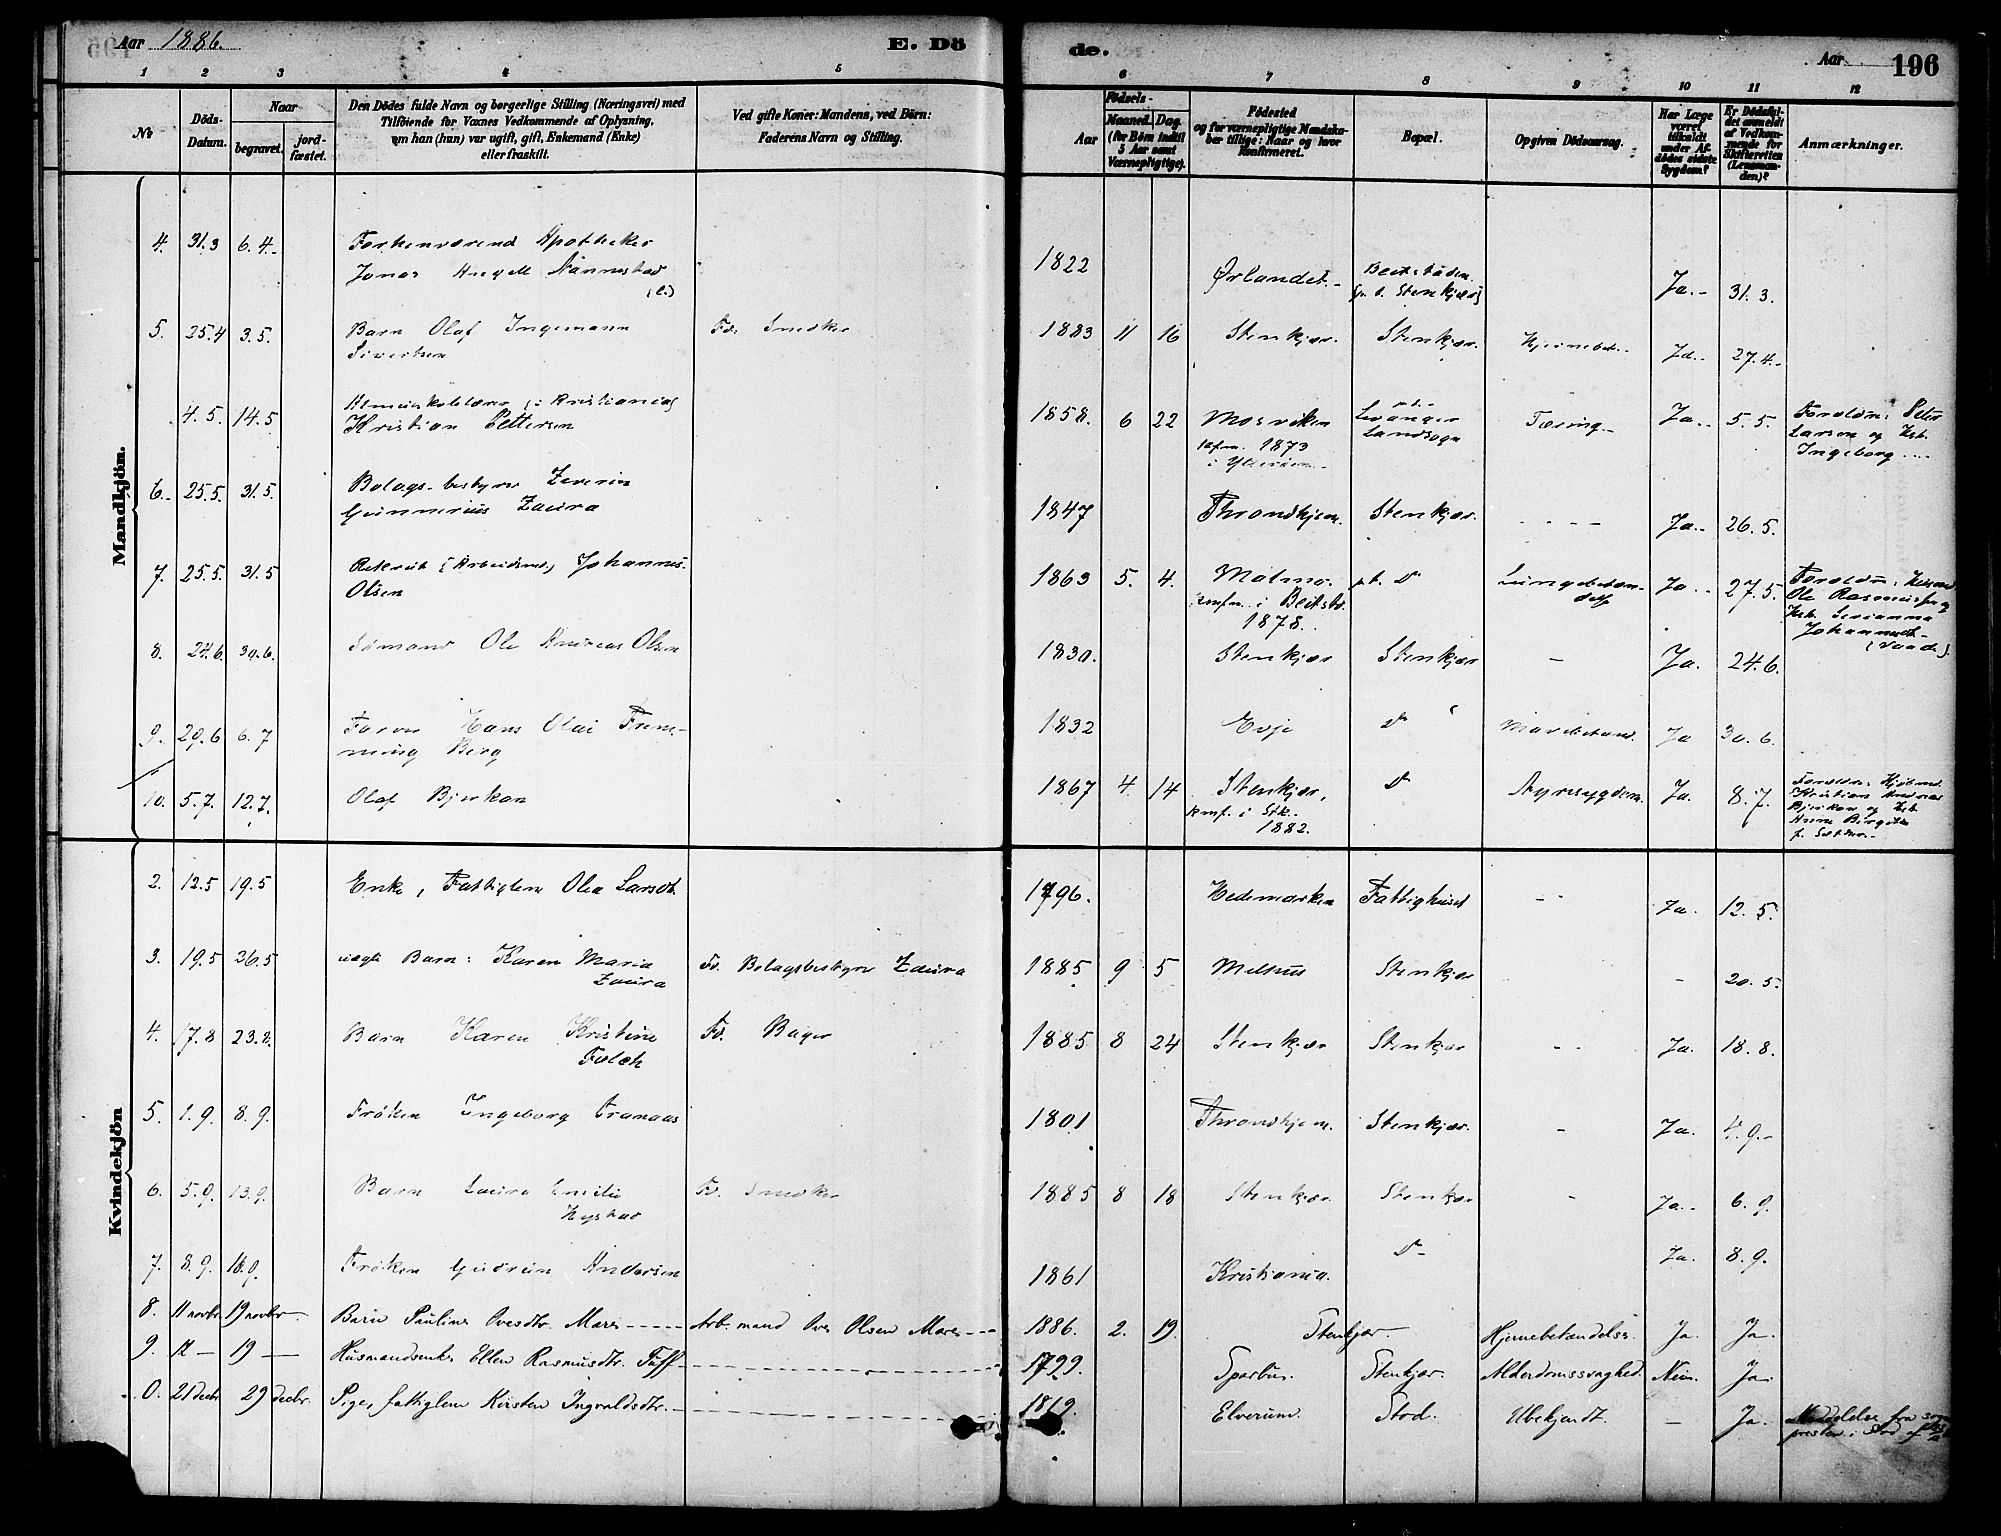 Aar 1886.
E. Dö
de.
Aar
196
1 2 3 4 5 6 7 8 9 10 11 12
No
Döds-Datum.
Naar
begravet.
jord-fæstet.
Den Dödes fulde Navn og borgerlige Stilling (Næringsvei) med
Tilföiende for Voxnes Vedkommende af Oplysning,
om han (hun) var ugift, gift, Enkemand (Enke)
eller fraskilt.
Ved gifte Koner: Mandens, ved Börn:
Faderens Navn og Stilling.
Födsels-
Aar
Maaned. Dag.
(for Börn indtil
5 Aar samt
Værnepligtige).
Födested
og for værnepligtige Mandska-
ber tillige: Naar og hvor
konfirmeret.
Bopæl.
Opgiven Dödsaarsag.
Har Læge
været
tilkaldt
under Af-
dödes sidste
Sygdom?
Er Dödsfal-
det anmeldt
af Vedkom-
mende for
Skifteretten
(Lensman-
den)?
Anmærkninger.
Mandkjön.
4. 31.3 6.4. Forhenværend Apotheker
Jonas Angell Nannestad
(e.)
1822 Ørlandet. Beitstaden Stenkjær Ja. 31.3.
5. 25.4 3.5. Barn Olaf Ingemann
Sivertsen
Fd. Snedker 1883 11 16 Stenkjær. Stenkjær. Ja. 27.4.
4.5. 14.5 (i Kristiania)
Kristian Pettersen
1858. 6 22 Mosviken
1873
i Ytterøen
Levanger
Landsogn
Tæring Ja. 5.5. Forældre: Peter
Larsen og
Ingeborg ....
6. 25.5. 31.5. Bolags-bestyrer Zeverin
Gunnerius Zaura
1847 Throndhjem. Stenkjær. - - - - Ja. 26.5.
7. 25.5. 31.5 Rekrut (Arbeidsmd) Johannes
Olsen
1863 5. 4. Malmo.
konfm. i Beitst.
1878.
pt. Do Lungebetæn-
delse
Ja. 27.5. Forældre: Husmd
Ole Rasmussen og
Johannesd.
8. 24.6. 30.6. Sømand Ole Andreas Olsen 1830. Stenkjær Stenkjær - Ja. 24.6.
9. 29.6 6.7 Hans Olai Flem-
ming Berg
1832 Do Ja 30.6.
10. 5.7. 12.7. Olaf Bjerkan 1867 4. 14 Stenkjær,
konf. i Stk.
1882.
Do Nyresygdom. Ja. 8.7. Forældre:
Kristian Andreas
Bjerkan og
Anne Birgitte
Kvindekjön
2. 12.5 19.5 Enke, Fattiglem Olea Larsdt. 1796. Hedemarken Fattighuset - - Ja. 12.5.
3. 19.5 26.5 uægte Barn: Karen Maria
Zaura
Fd. Bolagsbestyrer Zaura 1885 9 5 Melhus Stenkjær - 20.5.
4. 17.8 23.8. Barn Karen Kristine
Falch
Fd. Bager 1885 8 24 Stenkjær Stenkjær - - Ja. 18.8.
5. 1.9. 8.9. Frøken Ingeborg Tranaas 1801 Throndhjem. Stenkjær. - Ja. 4.9.
6. 5.9. 13.9. Barn Laura Emilie
Hegstad
Fd. Snedker 1885 8 18 Stenkjær Stenkjær - Ja. 6.9.
7. 8.9. 16.9. Frøken Gudrun Andersen 1861 Kristiania. Do Ja. 8.9.
8. 11 novbr 19 novbr Barn Pauline Ovesdtr. Mære Arb.mand Ove Olsen Mære 1886. 2. 19. Stenkjær. Hjernebetændelse. Ja. Ja.
9. 12 - 19 - Husmandsenke Ellen Rasmusdtr. Tuff 1799. Sparbu. Stenkjær. Alderdomssvaghed. Nei. Ja.
0. 21 decbr 29 decbr. Pige, fattiglem Kirsten Ingvaldsdtr. 1819. Elverum. Stod. Ubekjendt. - Ja. Meddelelse fra sogne-
presten i Stod